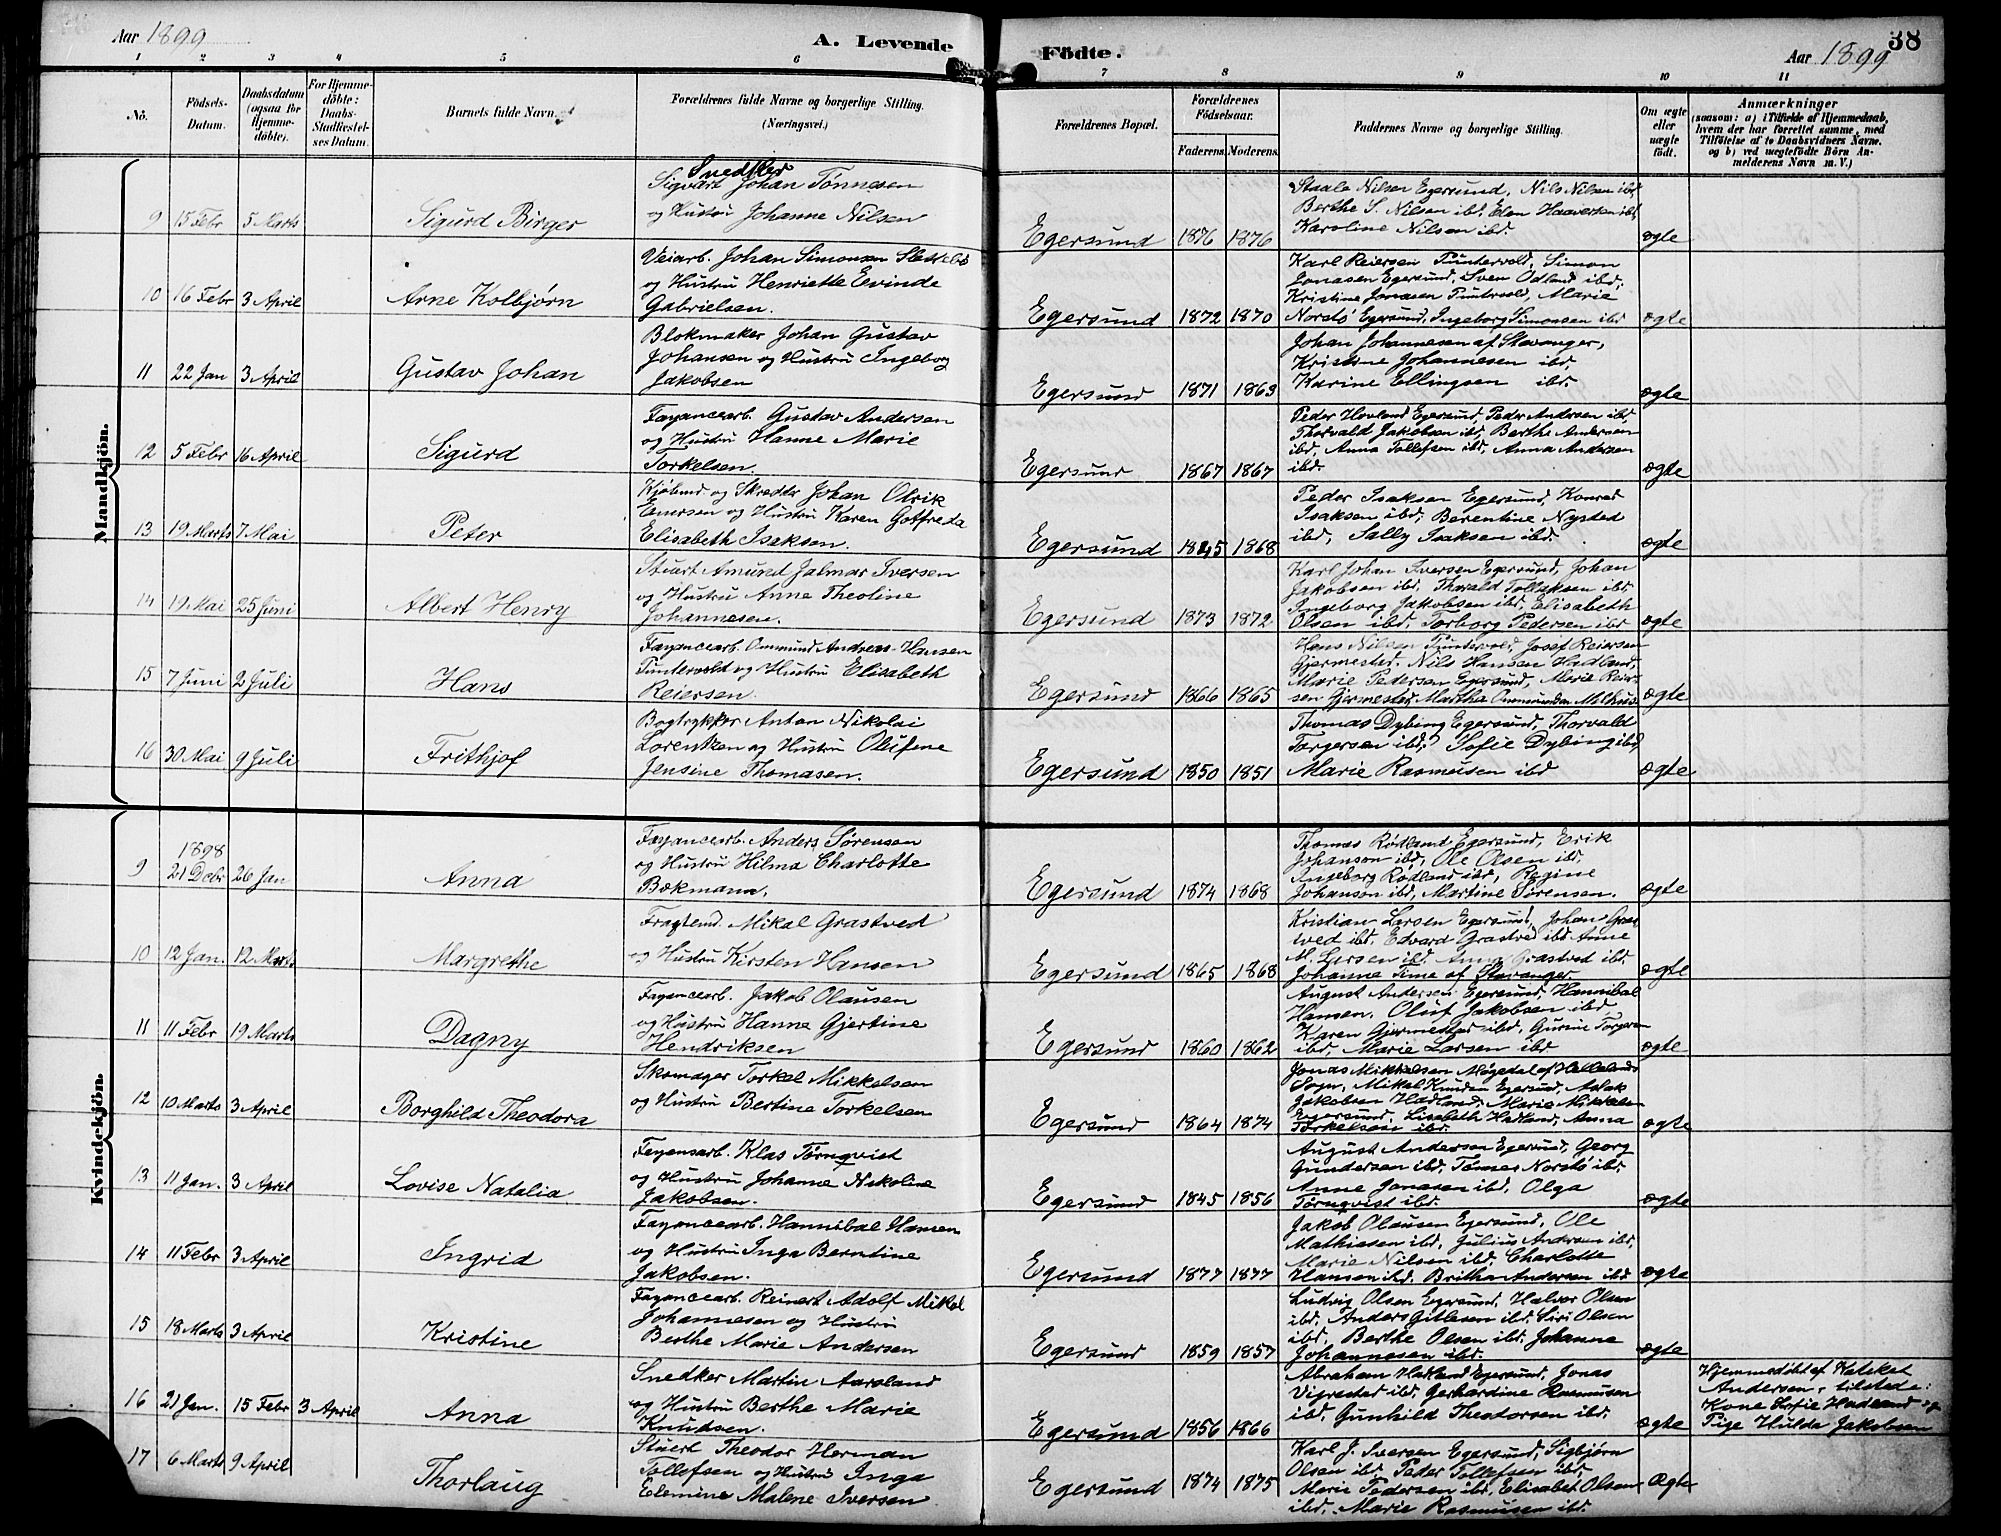 Aar 1899
A. Levende Födte.
Aar 1899
38
1 2 3 4 5 6 7 8 9 10 11
No.
Födsels-
Datum.
Daabsdatum
(ogsaa for
Hjemme-
döbte).
For Hjemme-
döbte:
Daabs-
Stadfæstel-
ses Datum.
Barnets fulde Navn.
Forældrenes fulde Navne og borgerlige Stilling.
(Næringsvei.)
Forældrenes Bopæl.
Forældrenes
Födselsaar.
Faderens. Moderens.
Faddernes Navne og borgerlige Stilling.
Om ægte
eller
uægte
født.
Anmærkninger
(saasom: a) i Tilfælde af Hjemmedaab,
hvem der har forrettet samme, med
Tilföielse af to Daabsvidners Navne,
og b) ved uægtefödte Börn An-
melderens Navn m. V.)
Mandkjön.
9 15 Febr 5 Marts Sigurd Birger
Snedker
Sigvart Johan Tönnesen
og Hustru Johanne Nilsen
Egersund 1876 1876
Staale Nilsen Egersund, Nils Nilsen ibd,
Berthe S. Nilsen ibd, Elen Haaversen ibd,
Karoline Nilsen ibd.
ægte
10 16 Febr 3 April Arne Kolbjørn
Veiarb. Johan Simonsen Slettebø
og Hustru Henriette Evinde
Gabrielsen.
Egersund 1872 1870
Karl Reiersen Puntervold, Simon
Jonasen Egersund, Sven Odland ibd,
Kristine Jonasen Puntervold, Marie
Norstö Egersund, Ingeborg Simonsen ibd
ægte
11 22 Jan 3 April Gustav Johan
Blokmaker Johan Gustav
Johansen og Hustru Ingeborg
Jakobsen
Egersund 1871 1863
Johan Johannesen af Stavanger,
Kristine Johannesen ibd.
Karine Ellingsen ibd.
ægte
12 5 Febr 16 April Sigurd
Fayancearb. Gustav Andersen
og Hustru Hanne Marie
Torkelsen.
Egersund 1867 1867
Peder Hovland Egersund, Peder Andersen ibd,
Thorvald Jakobsen ibd, Berthe Andersen
ibd, Anna Tollefsen ibd, Anna Andersen
ibd.
ægte
13 19 Marts 7 Mai Peter
Kjøbmd. og Skredder Johan Olrik
Emersen og Hustru Karen Gotfreda
Elisabeth Isaksen.
Egersund 1845 1868
Peder Isaksen Egersund, Konrad
Isaksen ibd, Berentine Nysted
ibd, Sally Isaksen ibd.
ægte
14 19 Mai 25 Juni Albert Henry
Stuart Amund Jalmar Iversen
og Hustru Anne Theoline
Johannesen.
Egersund 1873 1872
Karl Johan Iversen Egersund, Johan
Jakobsen ibd, Thorvald Tollaksen ibd,
Ingeborg Jakobsen ibd, Elisabeth
Olsen ibd, Torborg Pedersen ibd
ægte
15 7 Juni 2 Juli Hans
Fayancearb. Ommund Andreas Hansen
Puntervold og Hustru Elisabeth
Reiersen.
Egersund 1866 1865
Hans Nilsen Puntervold, Josef Reiersen
Gjermestad, Nils Hansen Hadland,
Marie Pedersen Egersund, Marie Reier-
sen Gjermestad, Martha Ommundsen
ægte
16 30 Mai 9 Juli Frithjof
Bogtrykker Anton Nikolai
Lorentzen og Hustru Olufine
Jensine Thomasen.
Egersund 1850 1851
Thomas Dybing Egersund, Thorvald
Torgersen ibd, Sofie Dybing ibd,
Marie Rasmusen ibd
ægte
Kvindekjön.
9 1898
21 Debr 26 Jan Anna
Fayancearb. Anders Sørensen
og Hustru Hilma Charlotte
Bokmann.
Egersund 1874 1868
Thomas Rødland Egersund, Erik
Johanson ibd, Ole Olsen ibd.
Ingeborg Rødland ibd, Regine
Johanson ibd, Martine Sørensen.
ægte
10 12 Jan. 12 Marts Margrethe
Fragtemd. Mikal Grastved
og Hustru Kirsten Hansen
Egersund 1865 1868
Kristian Larsen Egersund, Johan Gras-
tved ibd. Edvard Grastved ibd. Anne
M. Larsen ibd. Anna Grastved ibd.
Johanne Time af Stavanger
ægte
11 11 Febr 19 Marts Dagny
Fayancearb. Jakob Olausen
og Hustru Hanne Gjertine
Hendriksen
Egersund 1860 1862
August Andersen Egersund, Hannibal
Hansen, Oluf Jakobsen ibd,
Karen Gjermestad ibd, Gurine Torgersen
ibd, Marie Larsen ibd
ægte
12 10 Marts 3 April Borghild Theodora
Skomager Torkel Mikkelsen
og Hustru Bertine Torkelsen
Egersund 1864 1874
Jonas Mikkelsen Møgedal af Helleland
Sogn, Mikal Knudsen Egersund,
Jakobsen Hadland, Marie Mikkelsen
Egersund, Lisabeth Hadland, Anna
Torkelsen ibd.
ægte
13 11 Jan. 3 April Lovise Natalia
Fayensarb. Klas Törnqvist
og Hustru Johanne Nikoline
Jakobsen.
Egersund 1845 1856
August Anderson Egersund, Georg
Gundersen ibd, Tømes Norstö ibd
Anne Jonasen ibd, Olga
Törnqvist ibd.
ægte
14 11 Febr 3 April Ingrid
Fayancearb. Hannibal Hansen
og Hustru Inga Berntine
Jakobsen.
Egersund 1877 1877
Jakob Olausen Egersund, Ole
Mathiasen ibd, Julius Andersen ibd,
Marie Nilsen ibd, Charlotte
Hansen ibd, Britha Andersen ibd
ægte
15 18 Marts 3 April Kristine
Fayancearb. Reinert Adolf Mikal
Johannesen og Hustru
Berthe Marie Andersen
Egersund 1859 1857
Ludvig Olsen Egersund, Halvor Olsen
ibd, Anders Gitlesen ibd, Siri Olsen
ibd, Berthe Olsen ibd, Johanne
Johannesen ibd.
ægte
16 21 Jan. 15 Febr 3 April Anna
Snedker Martin Aarsland
og Hustru Berthe Marie
Knudsen.
Egersund 1856 1866
Abraham Hadland Egersund, Jonas
Vigrestad ibd, Gerhardine Rasmusen
ibd, Gunhild Theodorsen ibd.
ægte
Hjemmedøbt af Kateket
Andersen, tilstede:
Kone Sofie Hadland og
Pige Hulda Jakobsen
17 6 Marts 9 April Thorlaug
Stuert Theodor Herman
Tollefsen og Hustru Inga
Elemine Malene Iversen
Egersund 1874 1875
Karl J. Iversen Egersund, Sigbjørn
Olsen ibd, Peder Tollefsen ibd,
Marie Pedersen ibd, Elisabet Olsen
ibd, Marie Rasmusen ibd.
Ægte